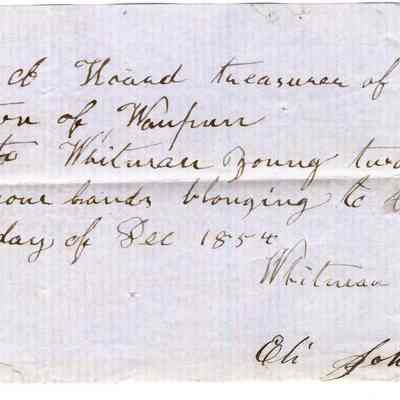 A Hoard treasurer of
of Waupun
to Whitman Young two
your hands blonging to
day of Dec 1854
Whitman
Eli